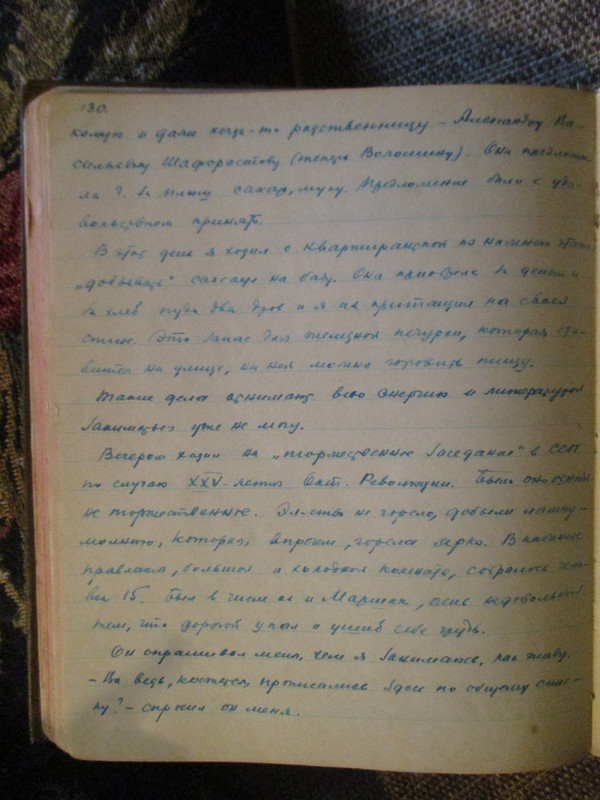 130.
когда-то родственницу – Александру Ва-
сильевну (тетку Волошину). Она предложи-
ла ? сахар, муку. Предложение было с удо-
вольствием принято.
В этот день я ходил с квартиранткой по
„добывать" саксаул на базу. Она за деньги и
за хлеб пуда два дров и я их притащил на своей
спине. Это запас для железной печурки, которая ста-
вится на улице, на ней можно готовить пищу.
Такие дела отнимают всю энергию и литературой
заниматься уже не могу.
Вечером ходил на „торжественное заседание" в ССП
по случаю XXV-летия Окт. Революции. Было оно отнюдь
не торжественное. Эл-ство не горело, добыли лампу-
молнию, которая, впрочем, горела ярко. В кабинете
правления, большой и холодной комнате, собралось чело-
век 15. Был в числе их и Маршак, очень недовольный
тем, что дорогой упал и ушиб себе грудь.
Он спрашивал меня, чем я занимаюсь, как живу.
– Вы ведь, кажется, прописались здесь по общему спис-
ку? – спросил он меня.